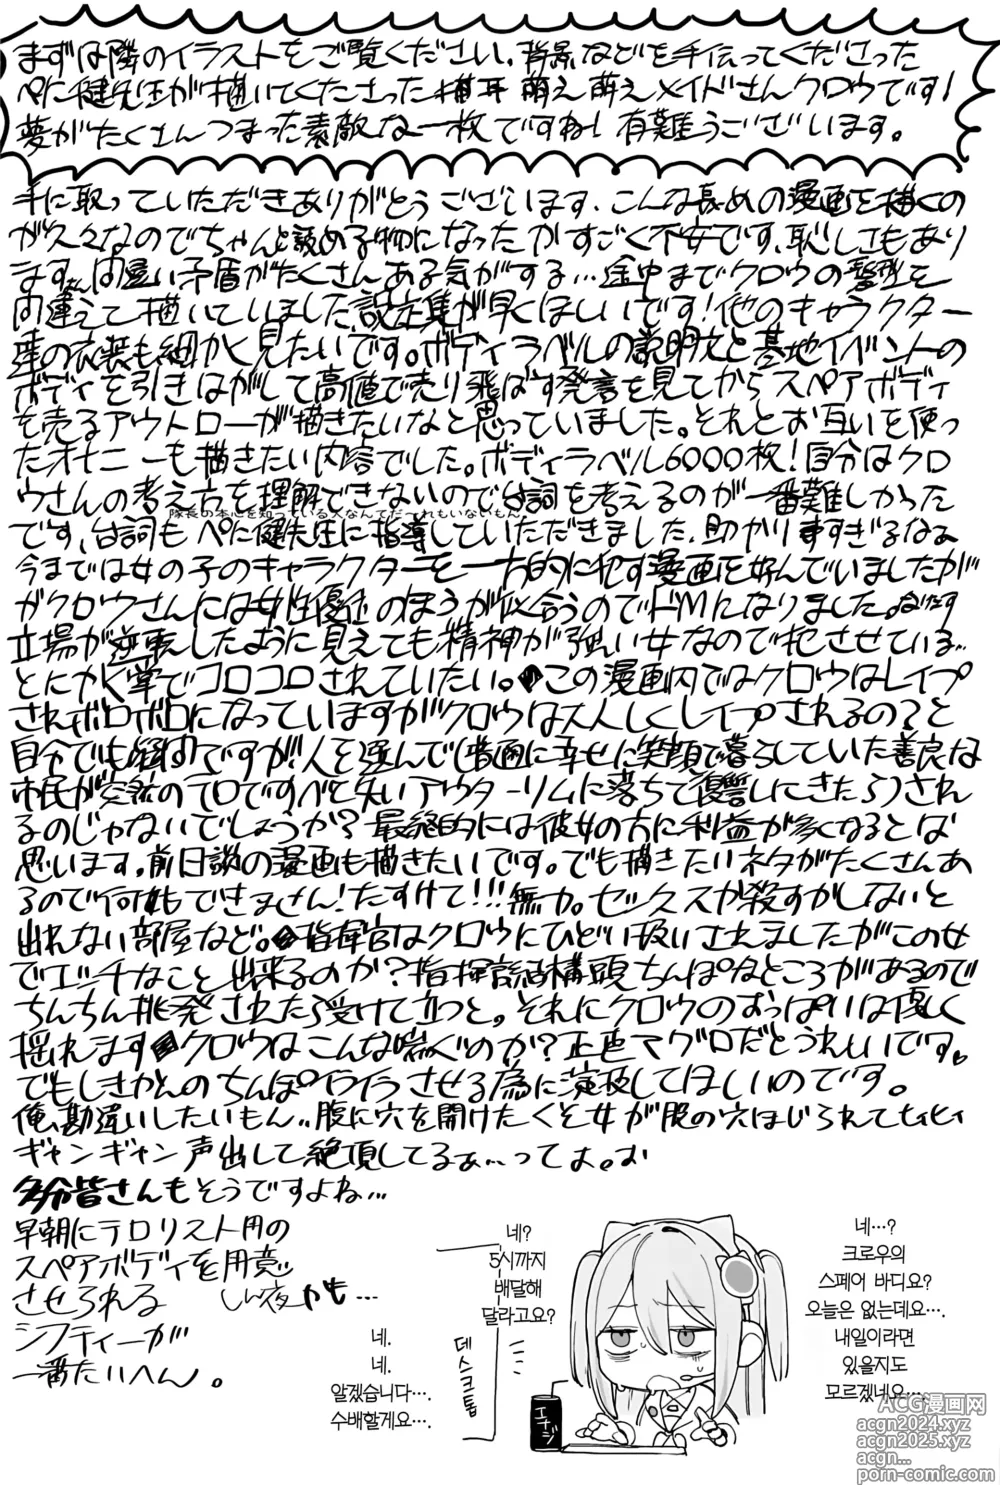 まずは隣のイラストをご覧ください。背景などを手伝ってくださった
ぺに健先生が描いてくださった猫耳萌え萌えメイドさんクロウです!
夢がたくさんつまった素敵な一枚ですね!有難うございます。
手に取っていただきありがとうございます、こんな長めの漫画を描くの
が久々なのでちゃんと読める物になったかすごく不安です、恥しさもあり
ます。間違い矛盾がたくさんある気がする…途中までクロウの髪型を
間違えて描いていました設定集が早くほしいです!他のキャラクター
達の衣装も細かく見たいです。ボディラベルの説明文と基地イベントの
ボディを引きはがして高値で売り飛ばす発言を見てからスペアボディ
を売るアウトローが描きたいなと思っていました。それとお互いを使っ
たオナニーも描きたい内容でした。ボディラベル6000枚!自分はクロ
ウさんの考え方を理解できないので台詞を考えるのが一番難しかった
隊長の本心を知っている人なんてだーれもいないもん。
です、台詞もぺに健先生に指導していただきました、助かりますぎるなぁ
今までは女の子のキャラクターを一方的に犯す漫画を好んでいましたが
がクロウさんには女性優位のほうが似合うのでドMになりました。
立場が逆転したように見えても精神が強い女なので犯させている…
とにかく掌でコロコロされていたい。◆この漫画内ではクロウはレイプ
されボロボロになっていますがクロウは大人しくレイプされるの?と
自分でも疑問ですが!人を選んで計画に幸せに笑顔で暮らしていた善良な
市民が突然のテロですべて失いアウターリムに落ちて復讐しにきたらされ
るのじゃないでしょうか?最終的には彼女の方に利益が多くなるとは
思います。前日談の漫画も描きたいです。でも描きたいネタがたくさんあ
るので何もできません!たすけて!!!無力。セックスか殺すかしないと
出れない部屋など。◆指揮官はクロウにひどい扱いされましたがこの女
でエッチなこと出来るのか?指揮官結構頭ちんぽなところがあるので
ちんちん挑発されたら受けて立つと。それにクロウのおっぱいは優しく
揺れます◆クロウはこんな喘ぐのか?正直マグロだとうれしいです。
でもしきかんのちんぽイライラさせる為に演技してほしいのです。
俺、勘違いしたいもん..腹に穴を開けたくそ女が股の穴ほじられてヒィヒィ
ギャンギャン声出して絶頂してるぁ…ってよ。お
多分皆さんもそうですよね…
早朝にテロリスト用の
スペアボディを用意
させられる しん夜かも…
シフティーが
一番たいへん。
네?
5시까지
배달해
달라고요?
네.
네.
알겠습니다….
수배할게요….
데스크톱
エナジ
네…?
크로우의
스페어 바디요?
오늘은 없는데요….
내일이라면
있을지도
모르겠네요….
ACG漫画网
acgn2024.xyz
acgn2025.xyz
acgn...
porn-comic.com